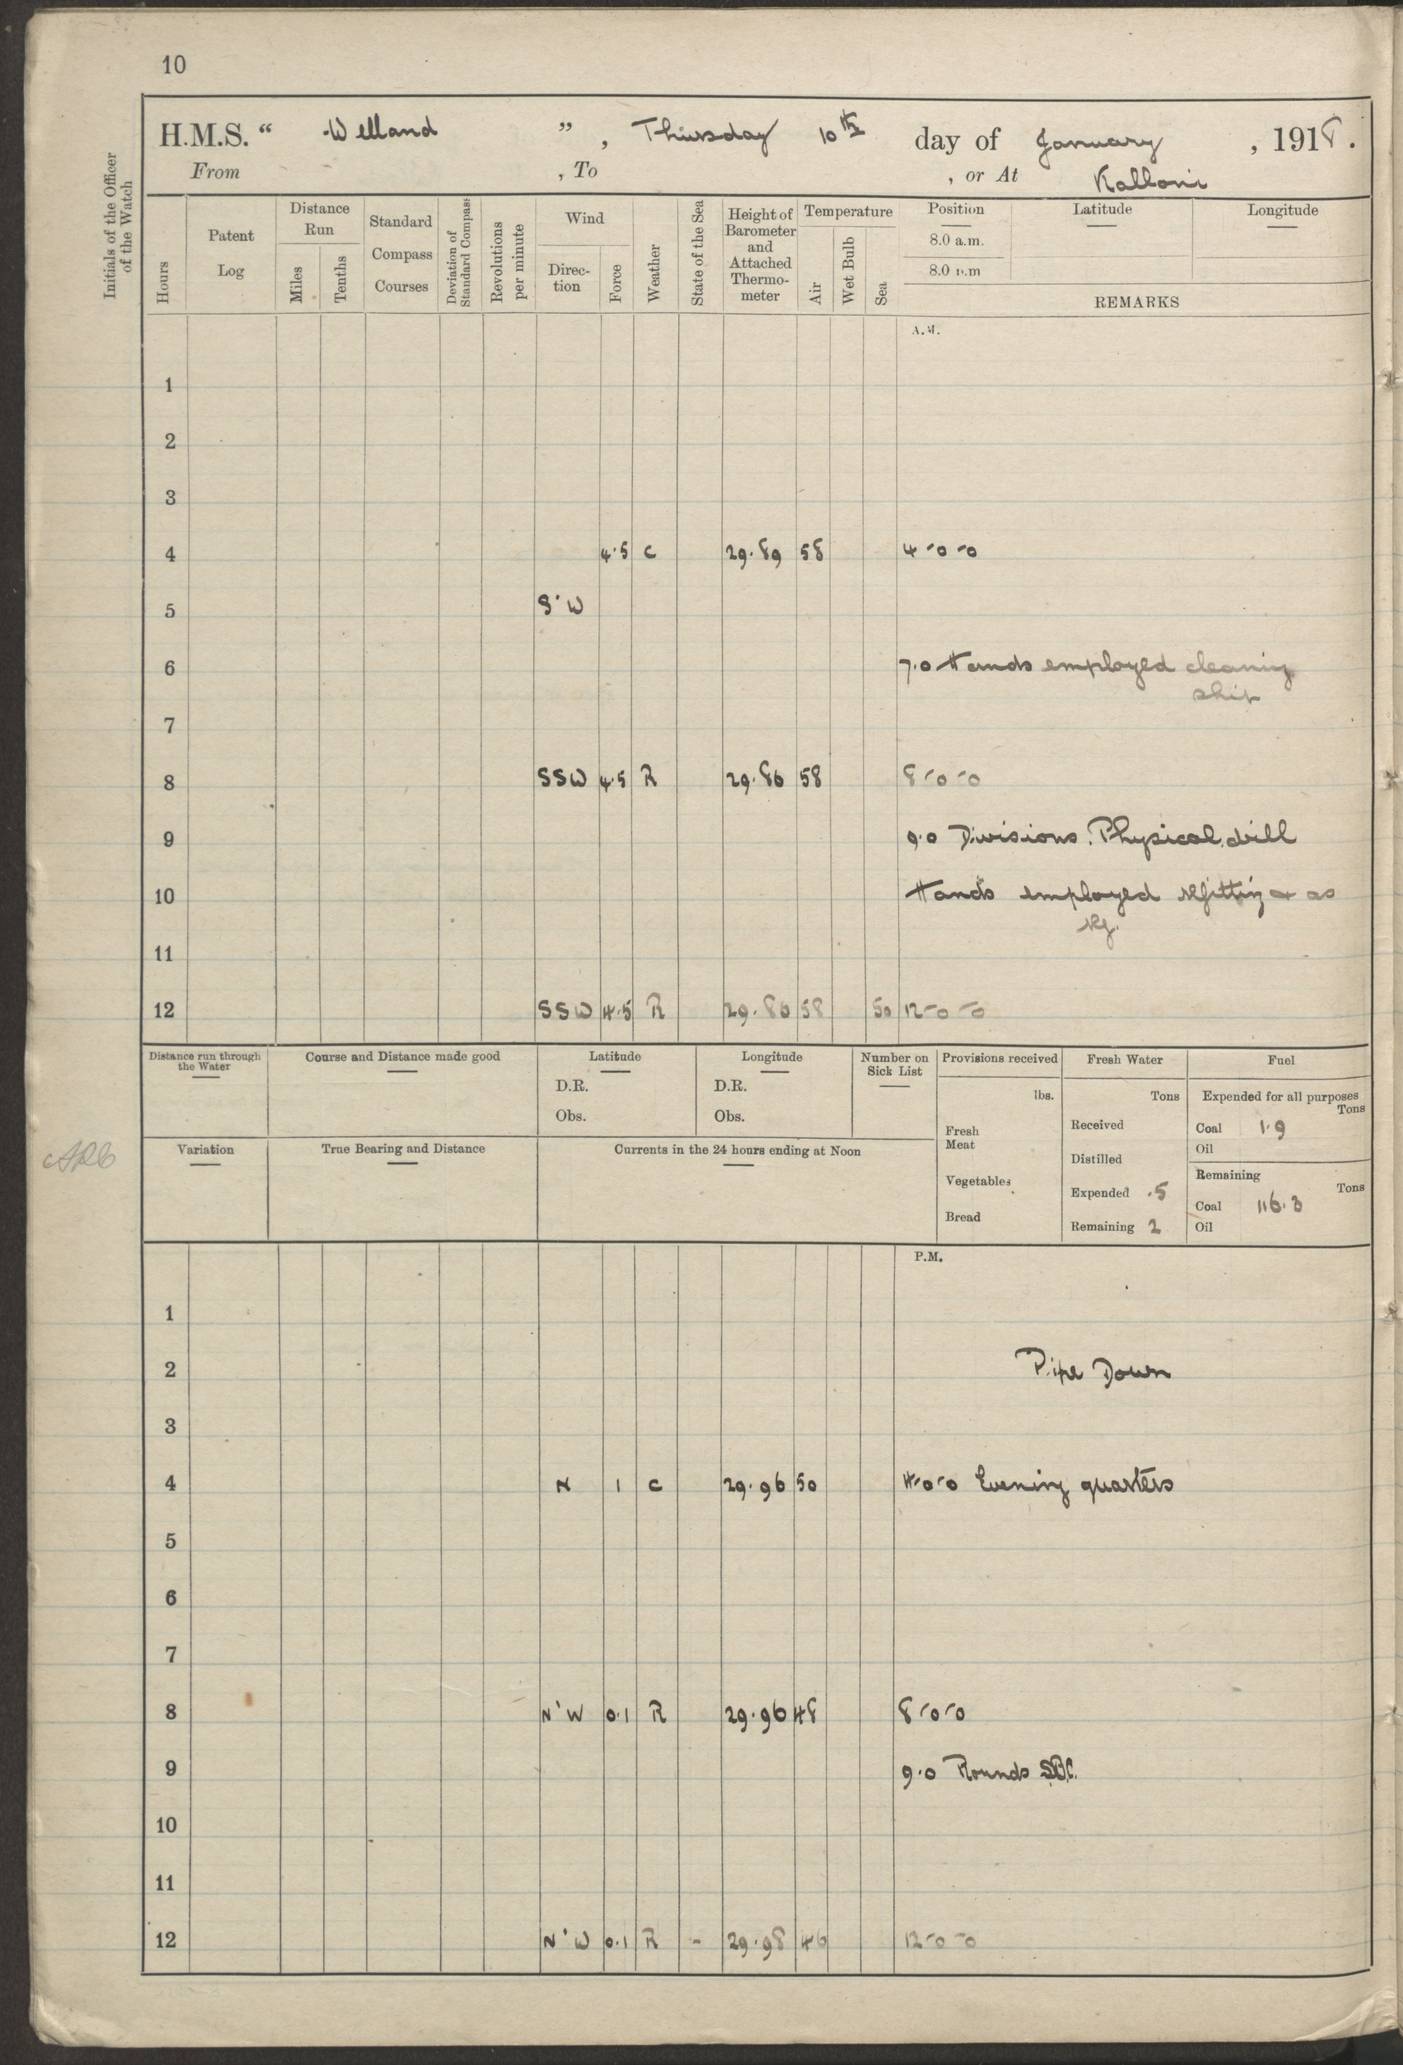 10
H.M.S. “ Welland ” , Thursday 10th day of January , 1918.
From , To , or At Kalloni
Initials of the Officer of the Watch
Hours
Patent Log
Distance Run
Miles
Tenths
Standard Compass Courses
Deviation of Standard Compass
Revolutions per minute
Wind
Direc-tion
Force
Weather
State of the Sea
Height of Barometer and Attached Thermo-meter
Temperature
Air
Wet Bulb
Sea
Position Latitude Longitude
8.0 a.m.
8.0 p.m
REMARKS
A.M.
1
2
3
4 4.5 C 29.89 58 4-0-0
5 S'W
6 7.0 Hands employed cleaning
ship
7
8 SSW 4.5 R 29.86 58 8-0-0
9 9.0 Divisions. Physical drill
10 Hands employed refitting & as
rq.
11
12 SSW 4.5 R 29.80 58 50 12-0-0
Distance run through the Water
Course and Distance made good
Latitude
D.R.
Obs.
Longitude
D.R.
Obs.
Number on Sick List
Provisions received
lbs.
Fresh Meat
Vegetables
Bread
Fresh Water
Tons
Received
Distilled
Expended .5
Remaining 2
Fuel
Expended for all purposes
Tons
Coal 1.9
Oil
Remaining
Tons
Coal 116.3
Oil
Variation
True Bearing and Distance
Currents in the 24 hours ending at Noon
P.M.
1
2 Pipe Down
3
4 N 1 C 29.96 50 4-0-0 Evening quarters
5
6
7
8 N'W 0.1 R 29.96 48 8-0-0
9 9.0 Rounds
10
11
12 N'W 0.1 R - 29.98 46 12-0-0